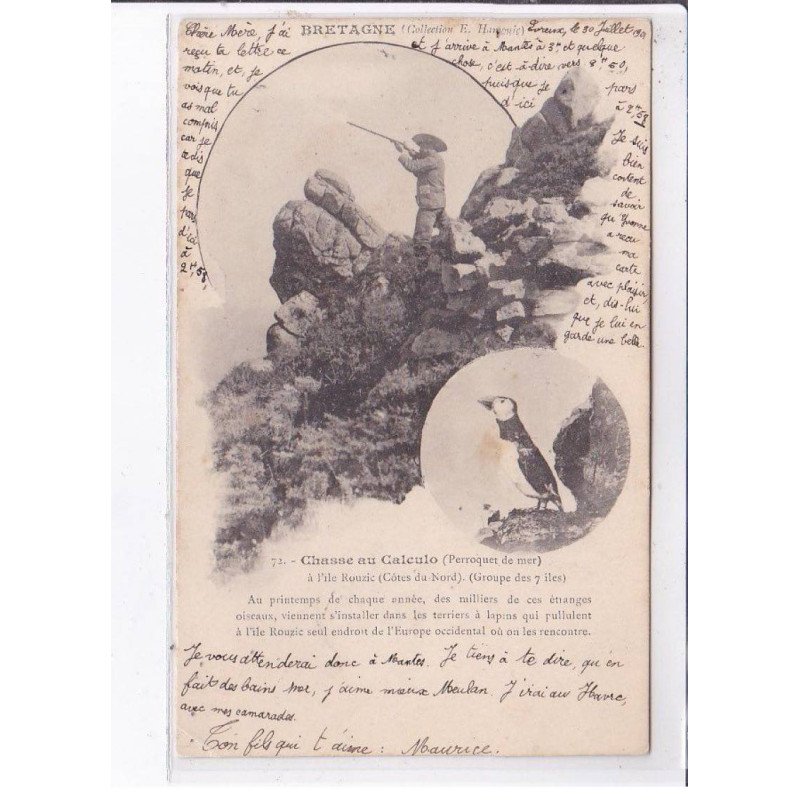 BRETAGNE (Collection E. Hamonic)
Evreux, le 30 Juillet
Chère Mère, j'ai
reçu ta lettre ce
matin, et, je
vois que tu
as mal
compris
car je
te dis
que
je
pars
d'ici
à
2H,58,
et j'arrive à Mantes à 3H et quelque
chose, c'est-à dire vers 3H 50,
puisque je pars
d'ici à 2H,58
Je suis
bien
content
de
savoir
qu'Yvonne
a reçu
ma
carte
avec plaisir
et, dis-lui
que je lui en
garde une belle.
72. - Chasse au Calculo (Perroquet de mer)
à l'île Rouzic (Côtes du Nord). (Groupe des 7 îles)
Au printemps de chaque année, des milliers de ces étranges
oiseaux, viennent s'installer dans les terriers à lapins qui pullulent
à l'île Rouzic seul endroit de l'Europe occidental où on les rencontre.
Je vous attenderai donc à Mantes. Je tiens à te dire, qu'en
fait des bains mer, j'aime mieux Meulan. J'irai au Havre,
avec mes camarades.
Ton fils qui t'aime : Maurice.